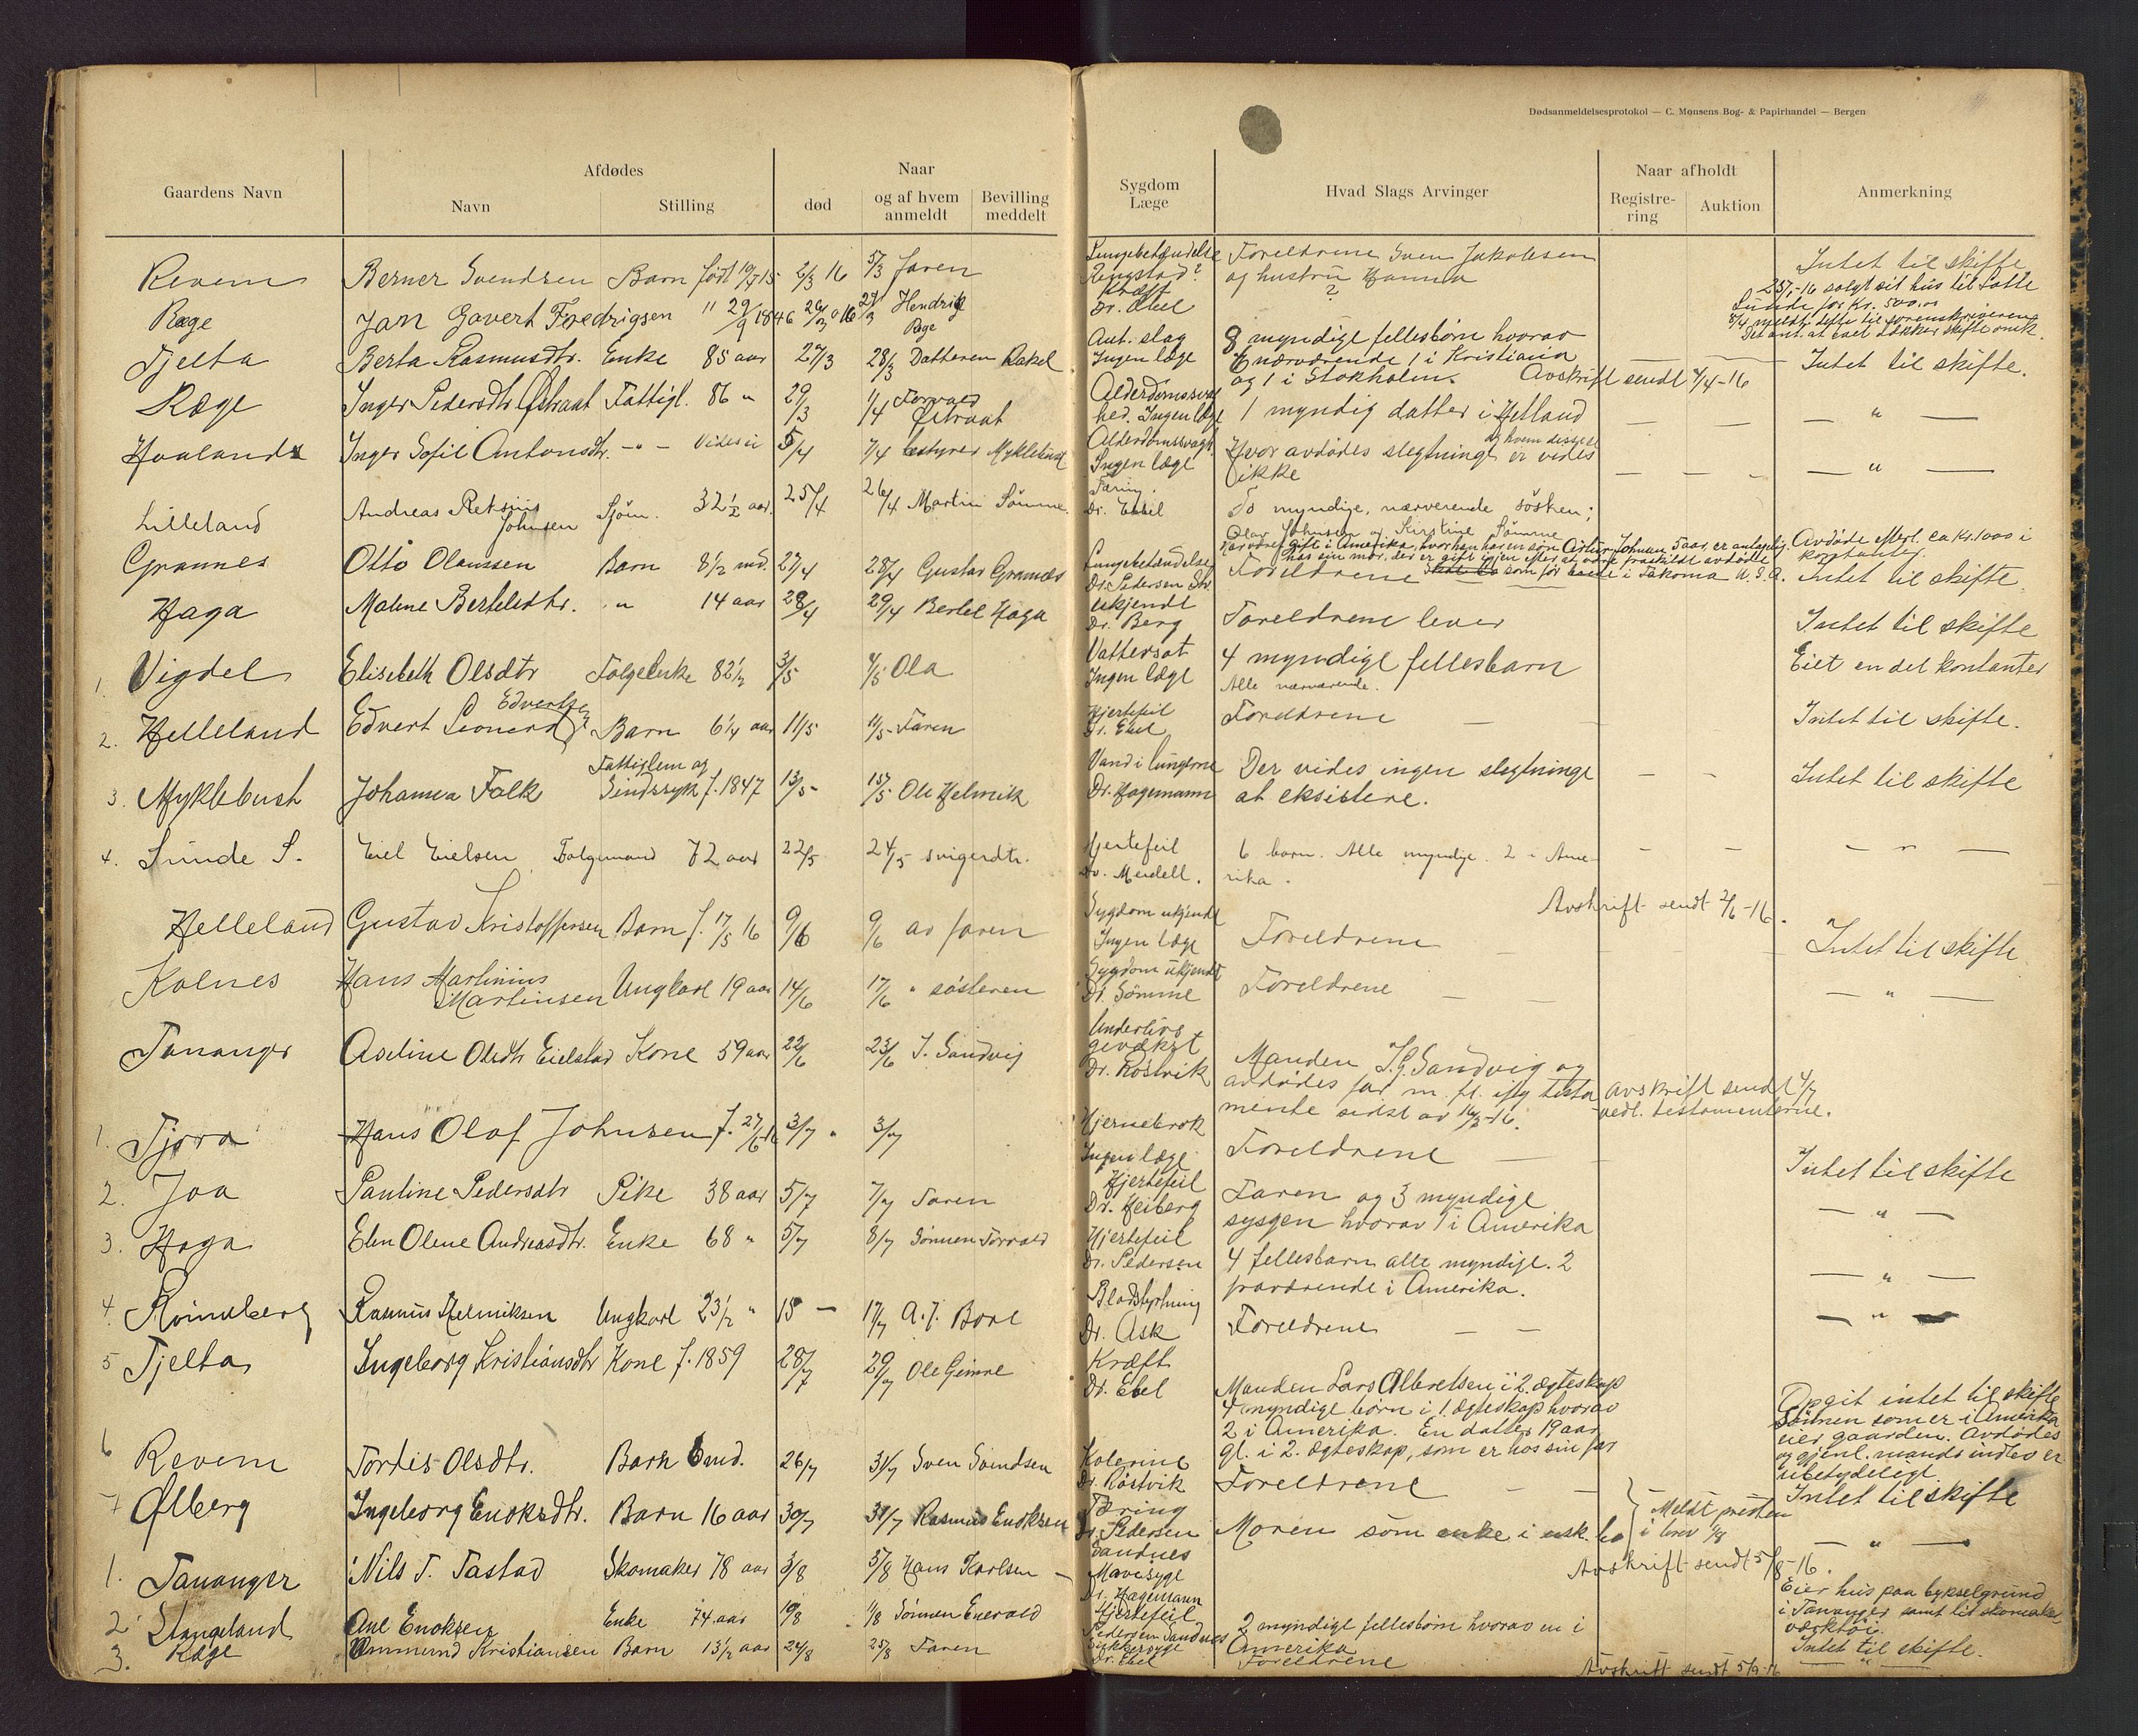 Dødsanmeldelsesprotokol — C. Monsens Bog- & Papirhandel — Bergen
Gaardens Navn
Afdødes
Navn
Stilling
Naar
død
og af hvem anmeldt
Bevilling meddelt
Sygdom
Læge
Hvad Slags Arvinger
Naar afholdt
Registrering
Auktion
Anmerkning
Revem Berner Svendsen Barn født 2/3 16 5/3 faren Lungebetændelse Foreldrene Sven Jakobsen Intet til skifte
Ringstad? og hustru Hanna
Ræge Jan Govert Fredrigsen Hendrik Ræge Kræft ?
Dr. Ebel
Tjelta Berta Rasmusdtr. Enke 85 aar 27/3 28/3 Datteren Rakel Ant. slag 8 myndige fellesbørn hvorav Intet til skifte.
Ingen læge 6 nærværende 1 i Kristiania
og 1 i Stokholm. Avskrift sendt 4/4-16
Ræge Inger Pedersdtr Østraat Fattigl. 86 " 29/3 1/4 Torvald Østraat Alderdomssvaghed. Ingen læge 1 myndig datter i Hetland — " —
Haaland Inger Sofie Antonsdtr. — " — Vides ei 5/4 7/4 bestyrer Myklebust Alderdomssvagh. Hvor avdødes slegtninge og hvem disse er vides — " —
Ingen læge ikke
Lilleland Andreas Johnsen Sjöm. 32½ aar. 25/4 26/4 Martin Sömme. Tæring. To myndige, nærverende søsken;
Dr. Ebbel Olav Johnsen og Kirstine Sömme
Avdøde efterl. ca kr. 1000 i kontanter.
Grannes Otto Olaussen Barn 8½ md. 27/4 28/4 Gustav Grannes Lungebetændelse Foreldrene Intet til skifte.
Dr. Pedersen
Haga Malene Bertelsdtr. " 14 aar 28/4 29/4 Bertel Haga ukjendt Foreldrene lever Intet til skifte
Dr. Berg
1. Vigdel Elisebeth Olsdtr Folgeenke 82½ 3/5 4/5 Ola Vattersot 4 myndige fellesbarn Eiet en del kontanter
Ingen læge Alle nærværende.
2. Helleland Edvert Leonard Edvertsen Barn 6¼ aar 11/5 11/5 Faren Hjertefeil Foreldrene — Intet til skifte.
Dr. Ebel
3. Myklebust Johanna Falk Fattiglem og Sindssyk f. 1847 13/5 15/5 Ole Helmik Vand i lungerne Der vides ingen slegtninge — — Intet til skifte
Dr. Hagemann at eksistere.
4. Sunde S. Eiel Eielsen Folgemand 72 aar 22/5 24/5 svigerdtr. Hjertefeil 6 barn. Alle myndige. 2 i Ame- — — — " —
Dr. Meidell. rika.
Avskrift sendt 2/6-16.
Helleland Gustav Kristoffersen Barn f. 17/5 16 9/6 9/6 av faren Sygdom ukjendt Foreldrene Intet til skifte.
Ingen læge
Kolnes Hans Martinius Martinsen Ungkarl 19 aar 14/6 17/6 " søsteren Sygdom ukjendt Foreldrene — — — " —
Dr. Sömme
Tananger Aseline Olsdtr Eielstad Kone 59 aar 22/6 23/6 J. Sandvig Underlivs gevækst Manden J. G. Sandvig og
Dr. Rostvik avdødes far m. fl. iflg testa- avskrift sendt 4/7
mente sidst av vedl. testamenterne.
1. Tjora Hans Olaf Johnsen f. 27/6-16 3/7 3/7 Hjernebrok Foreldrene — Intet til skifte
Ingen læge
2. Joa Pauline Pedersdtr Pike 38 aar 5/7 7/7 Faren Hjertefeil Faren og 3 myndige — " —
Dr. Heiberg sysgen hvorav 1 i Amerika
3. Haga Elen Olene Andreasdtr. Enke 68 " 5/7 8/7 Sønnen Torvald Hjertefeil 4 fellesbarn alle myndige. 2 — " —
Dr. Pedersen fraværende i Amerika.
4. Rasmus Helmiksen Ungkarl 23½ " 15 — 17/7 A. J. Bore Blodstyrtning Foreldrene — — — " —
Dr. Ask
5 Tjelta Ingeborg Kristiansdtr Kone f. 1859 28/7 29/7 Ole Gimre Kræft Manden Lars Albretsen i 2. ægteskap Opgit intet til skifte
Dr. Ebel 4 myndige børn i 1. ægteskap hvorav Sønnen som er i Amerika
2 i Amerika. En datter 19 aar eier gaarden. Avdødes
gl. i 2. ægteskap, som er hos sin far og gjenl. mands indbo er
ubetydeligt.
6 Revem Tordis Olsdtr. Barn 6 md. 26/7 31/7 Sven Svendsen Kolerine Foreldrene — — Intet til skifte
Dr. Rostvik
7 Ølberg Ingeborg Enoksdtr. Barn 16 aar 30/7 31/7 Rasmus Enoksen Tæring Moren som enke i usk. bo — " —
Dr. Pedersen Sandnes
Meldt presten i brev
Avskrift sendt 5/8-16.
1. Tananger Nils T. Tastad Skomaker 78 aar 3/8 5/8 Hans Karlsen — Mavesyge Eier hus paa bykselgrund
Dr. Hagemann i Tananger samt lit skomaker
værktøi.
2 Stangeland Ane Enoksen Enke 74 aar 10/8 11/8 Sønnen Enevald Hjertefeil 2 myndige fellesbørn hvorav en i Intet til skifte.
Pedersen Sandnes Amerika
3. Ræge Ommund Kristiansen Barn 13½ aar 24/8 25/8 Faren Sukkersyge Foreldrene — " —
Dr. Ebel
Avskrift sendt 5/9-16